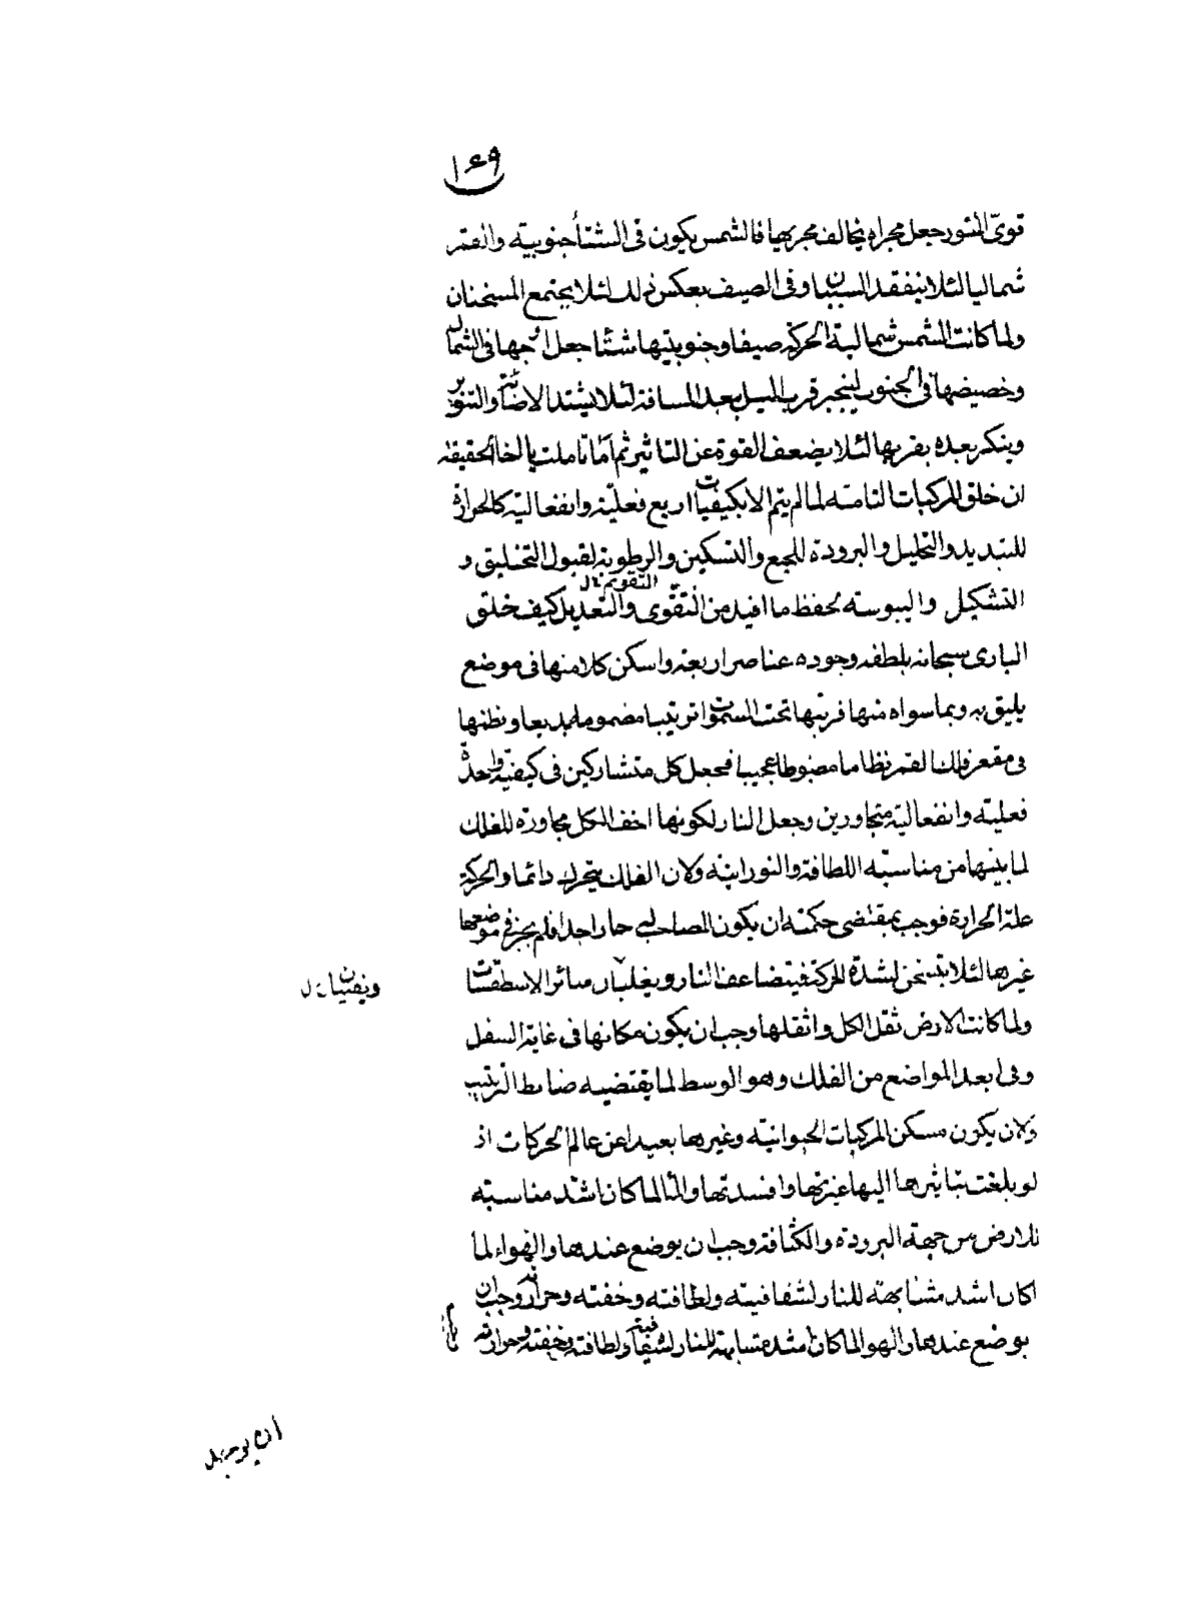 ١٤٩
قوىّ النور جعل مجراه يخالف مجريها فالشمس يكون فى الشتأ جنوبية والقمر
شماليا لئلا ينفقد السببان وفى الصيف بعكس ذلك لئلا يجتمع المسخنان
ولما كانت الشمس شمالية الحركة صيفا وجنوبيتها شتأ جعل اوجها فى الشمال
وخصيضها فى الجنوب لينجبر قرب الميل ببعد المسافة لئلا يشتد الاضائة والتنوير
وينكسر بعده بقربها لئلا يضعف القوة عن التاثير ثم اما تاملت يا اخا الحقيقة
ان خلق المركبات التامة لما لم يتم الا بكيفيات اربع فعلية وانفعالية كالحرارة
للتبديد والتحليل والبرودة للجمع والتسكين والرطوبة لقبول التخليق و
التشكيل واليبوسته لحفظ ما افيد من التقوى والتعديل كيف خلق
التقويم ل
البارى سبحانه بلطفه وجوده عناصر اربعة واسكن كلا منها فى موضع
يليق به وبما سواه منها فرتبها تحت السموات ترتيبا بديعا ونظمها
فى مقعر فلك القمر نظاما مضبوطا عجيبا فجعل كل متشاركين فى كيفية واحدة
فعلية وانفعالية متجاورين وجعل النار لكونها اخف الكل مجاورة للفلك
لما بينهما من مناسبة اللطافة والنورانية ولان الفلك يتحرك دائما والحركة
علة الحرارة فوجب بمقتضى حكمته ان يكون المصاحب حارا جدا فلم يجز فى موضعها
غيرها لئلا يتسخن لشدة الحركة فيتضاعف النار ويغلبان سائر الاسطقسات
ويفنيان ل
ولما كانت الارض ثقل الكل واثقلها وجب ان يكون مكانها فى غاية السفل
وفى ابعد المواضع من الفلك وهو الوسط لما يقتضيه ضابط الترتيب
ولان يكون مسكن المركبات الحيوانية وغيرها بعيدا عن عالم الحركات اذ
لو بلغت تباثرها اليها غيرتها وافسدتها والمأ لما كان اشد مناسبة
للارض من جهة البرودة والكثافة وجب ان يوضع عندها والهواء لما
كان اشد مشابهة للنار لشفافيته ولطافته وخفته وحرارته وجب ان
يوضع عندها والهوا لما كان اشد متشابهة للنار لشفافيته ولطافته وخفته وحرارته